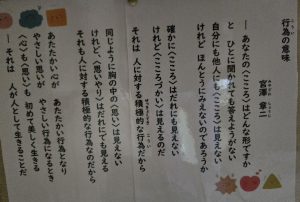 行為の意味
宮澤 章二
―あなたの〈こころ〉はどんな形ですか
と ひとに聞かれても答えようがない
自分にも他人にも〈こころ〉は見えない
けれど ほんとうに見えないのであろうか
確かに〈こころ〉はだれにも見えない
けれど〈こころづかい〉は見えるのだ
それは 人に対する積極的な行為だから
同じように胸の中の〈思い〉は見えない
けれど〈思いやり〉はだれにでも見える
それも人に対する積極的な行為なのだから
あたたかい心が あたたかい行為となり
やさしい思いが やさしい行為になるとき
〈心〉も〈思い〉も 初めて美しく生きる
―それは 人が人として生きることだ